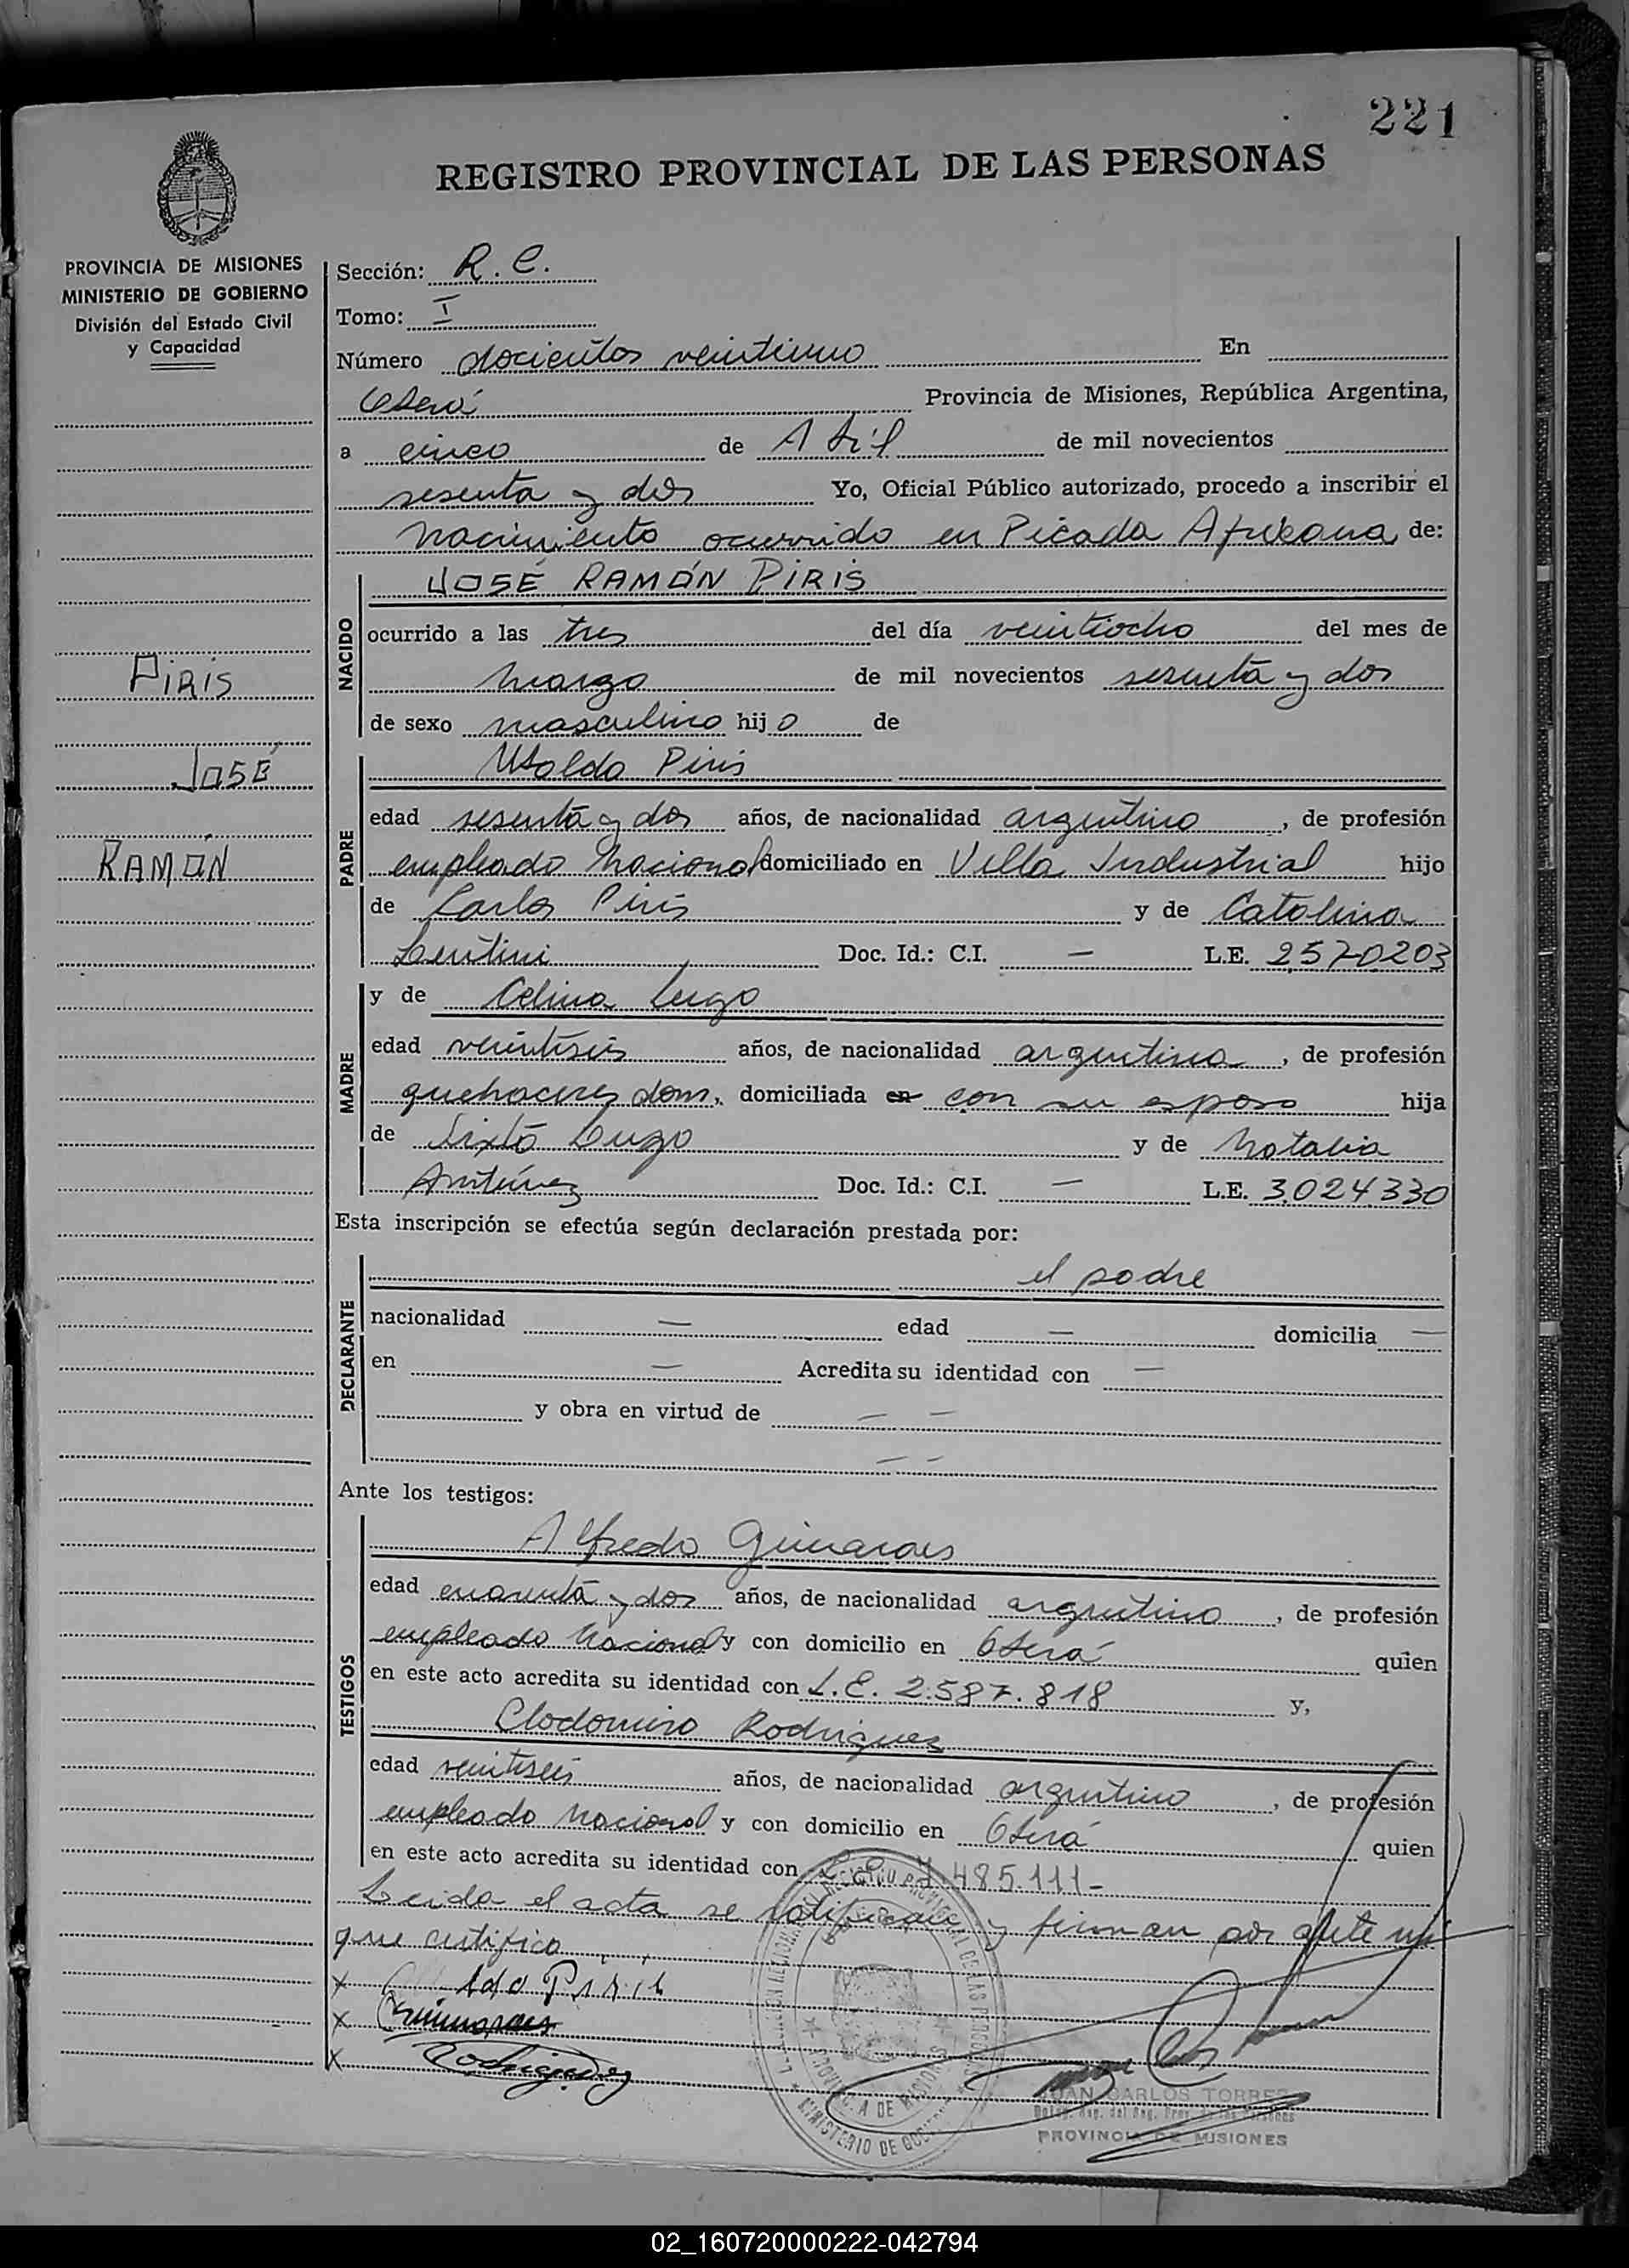 221
REGISTRO PROVINCIAL DE LAS PERSONAS
PROVINCIA DE MISIONES
MINISTERIO DE GOBIERNO
División del Estado Civil
y Capacidad
PIRIS
JOSÉ
RAMÓN
Sección: R. C.
Tomo: I
Número docientos veintiuno En
Oberá Provincia de Misiones, República Argentina,
a cinco de Abril de mil novecientos
sesenta y dos Yo, Oficial Público autorizado, procedo a inscribir el
nacimiento ocurrido en Picada Africana, de:
NACIDO
JOSÉ RAMÓN PIRIS
ocurrido a las tres del día veintiocho del mes de
marzo de mil novecientos sesenta y dos
de sexo masculino hijo de
PADRE
Ubaldo Piris
edad sesenta y dos años, de nacionalidad argentino, de profesión
empleado Nacional domiciliado en Villa Industrial hijo
de Carlos Piris y de Catalina
Lentini Doc. Id.: C.I. — L.E. 2.570.203
MADRE
y de Celina Lugo
edad veintiseis años, de nacionalidad argentina, de profesión
quehaceres dom. domiciliada en con su esposo hija
de Sixto Lugo y de Natalia
Antúnez Doc. Id.: C.I. — L.E. 3.024.330
Esta inscripción se efectúa según declaración prestada por:
DECLARANTE
el padre
nacionalidad — edad — domicilia —
en — Acredita su identidad con —
y obra en virtud de — —
— —
Ante los testigos:
TESTIGOS
Alfredo Guimaraes
edad cuarenta y dos años, de nacionalidad argentino, de profesión
empleado Nacional y con domicilio en Oberá quien
en este acto acredita su identidad con L.E. 2.587.818 y,
Clodomiro Rodriguez
edad veintiseis años, de nacionalidad argentino, de profesión
empleado Nacional y con domicilio en Oberá quien
en este acto acredita su identidad con 485.111-
Leida el acta se ratifican y firman por ante mi
que certifico
x Piris
x Guimaraes
x Rodriguez
PROVINCIA DE MISIONES
MINISTERIO DE GOBIERNO
JUAN CARLOS TORRES
PROVINCIA DE MISIONES
02_160720000222-042794